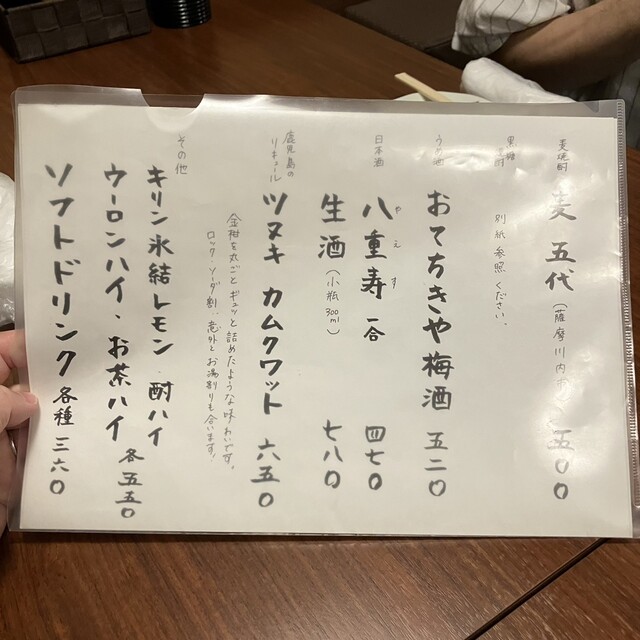 麦焼酎
麦 五代 (薩摩川内市) 五〇〇
黒糖焼酎
別紙参照ください。
うめ酒
おてちきや梅酒 五二〇
日本酒
八重寿 一合 四七〇
やえす
生酒 (小瓶300ml) 七八〇
鹿児島の
リキュール
ツヌキ カムクワット 六五〇
金柑を丸ごとギュッと詰めたような味わいです。
ロック、ソーダ割、意外とお湯割りも合います!
その他
キリン氷結レモン 酎ハイ
ウーロンハイ、お茶ハイ 各五五〇
ソフトドリンク 各種 三六〇